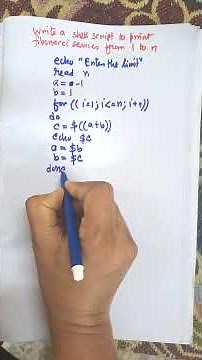 Write a shell script to print
fibonacci servies from 1 to n
echo "Enter the limit"
read n
a=-1
b=1
for((i=1;i<=n;i++))
do
c=$((a+b))
echo $c
a=$b
b=$c
done